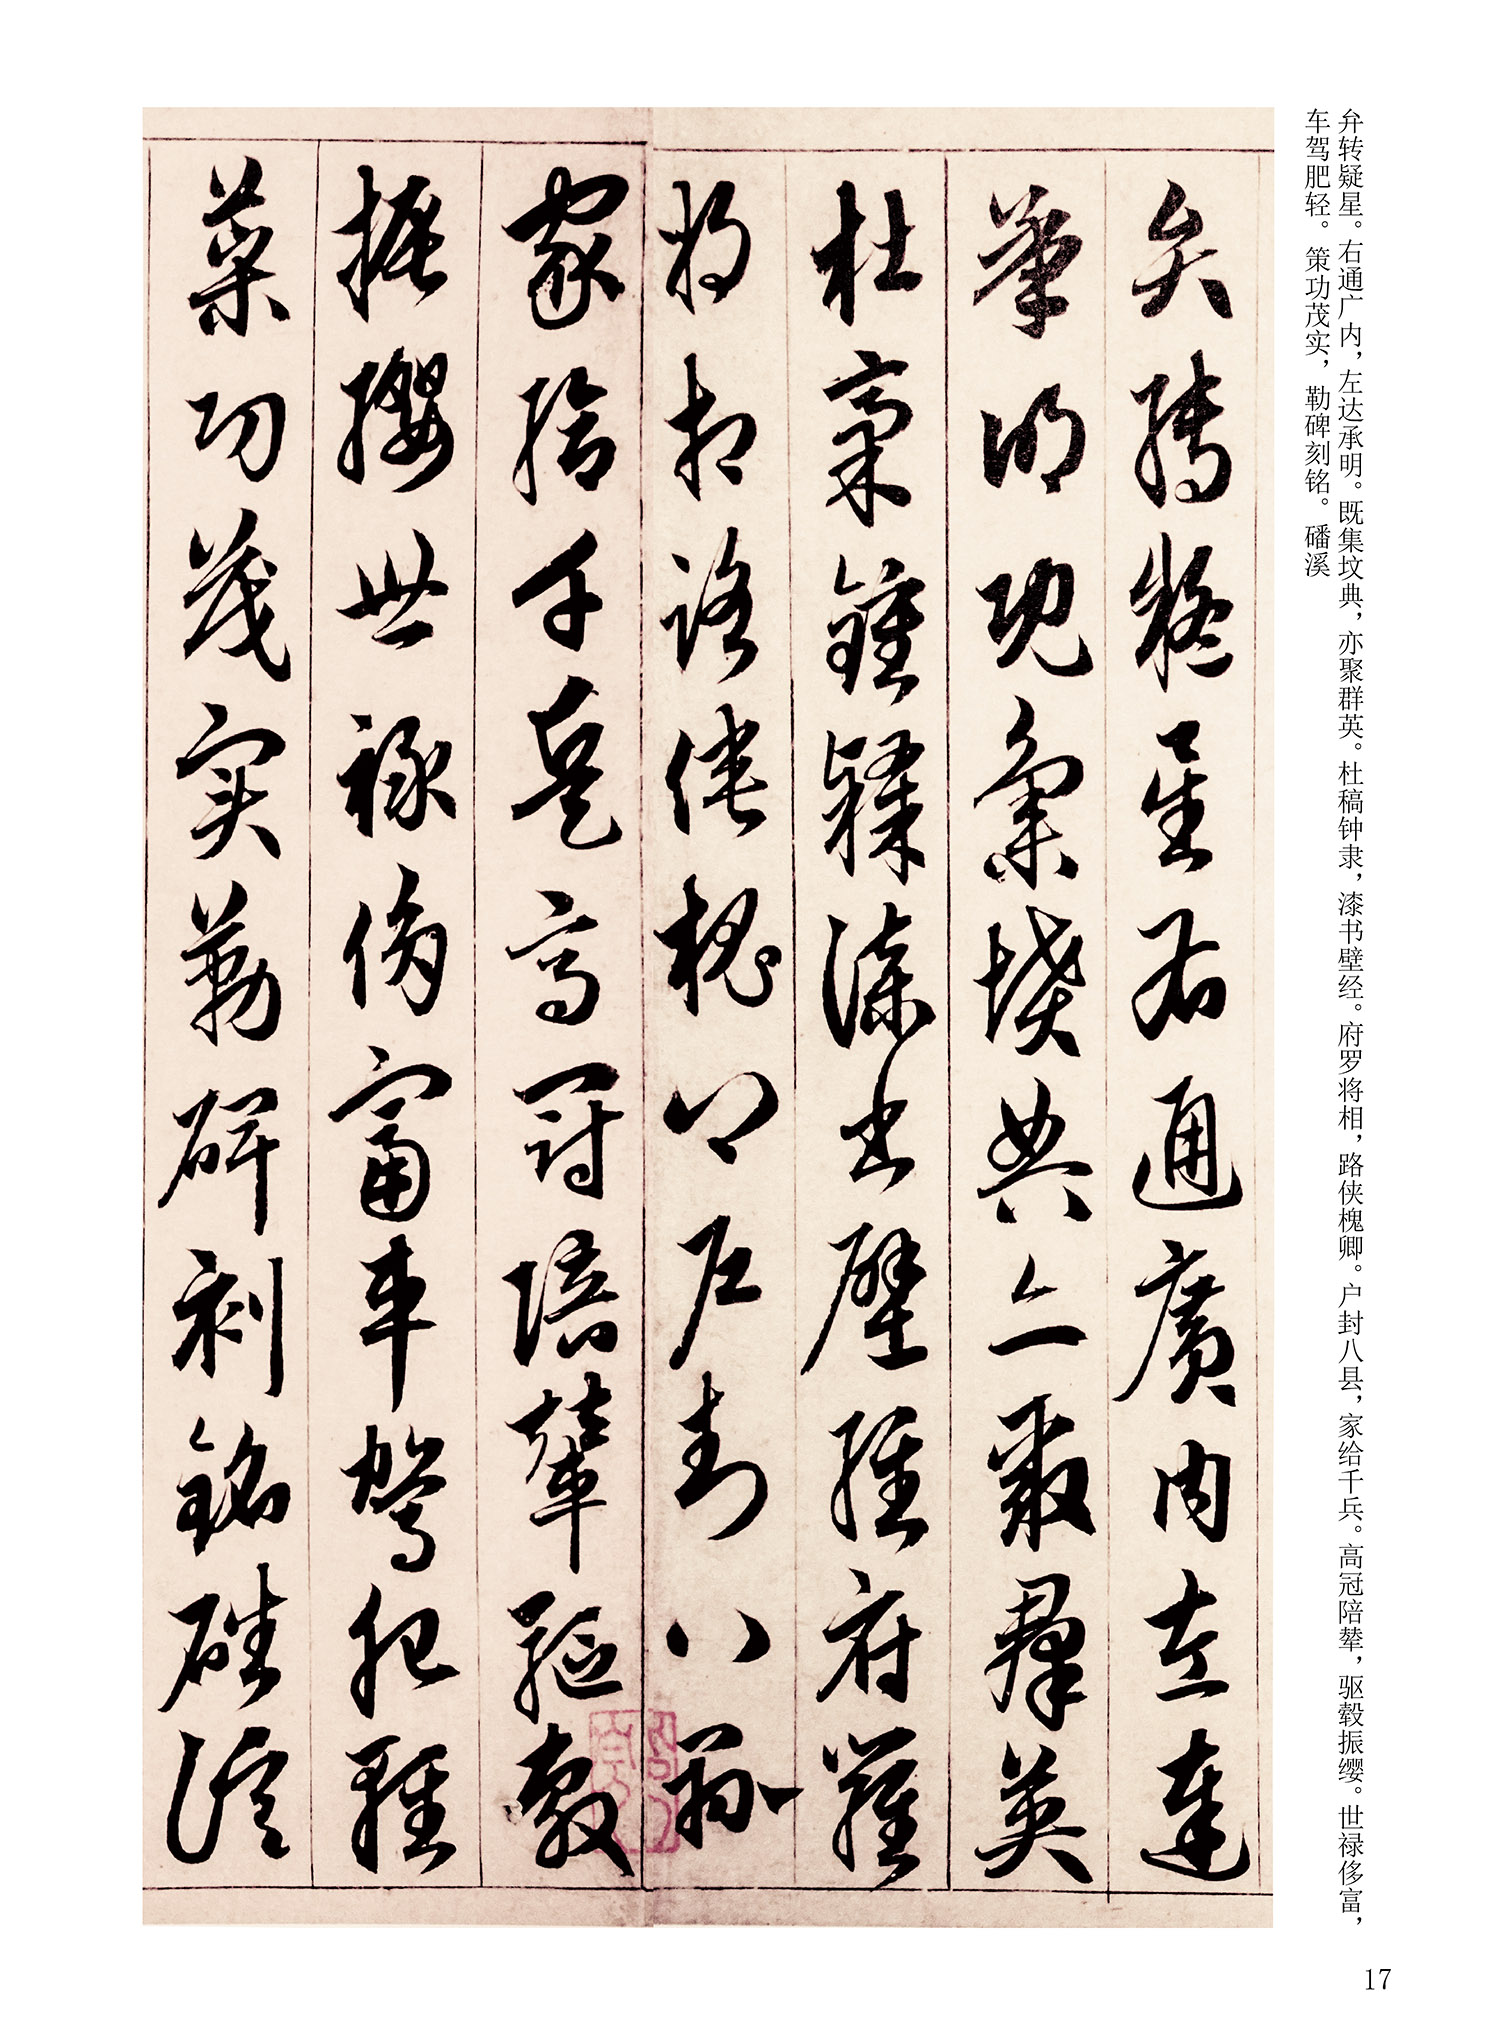 弁转疑星。右通广内，左达承明。既集坟典，亦聚群英。杜稿钟隶，漆书壁经。府罗将相，路侠槐卿。户封八县，家给千兵。高冠陪辇，驱毂振缨。世禄侈富，
车驾肥轻。策功茂实，勒碑刻铭。磻溪
弁轉疑星右通廣内左達
承明既集墳典亦聚群英
杜稾鍾隸漆書壁經府羅
将相路俠槐卿戶封八縣
家給千兵高冠陪輦驅轂
振纓世祿侈富車駕肥輕
策功茂實勒碑刻銘磻溪
17